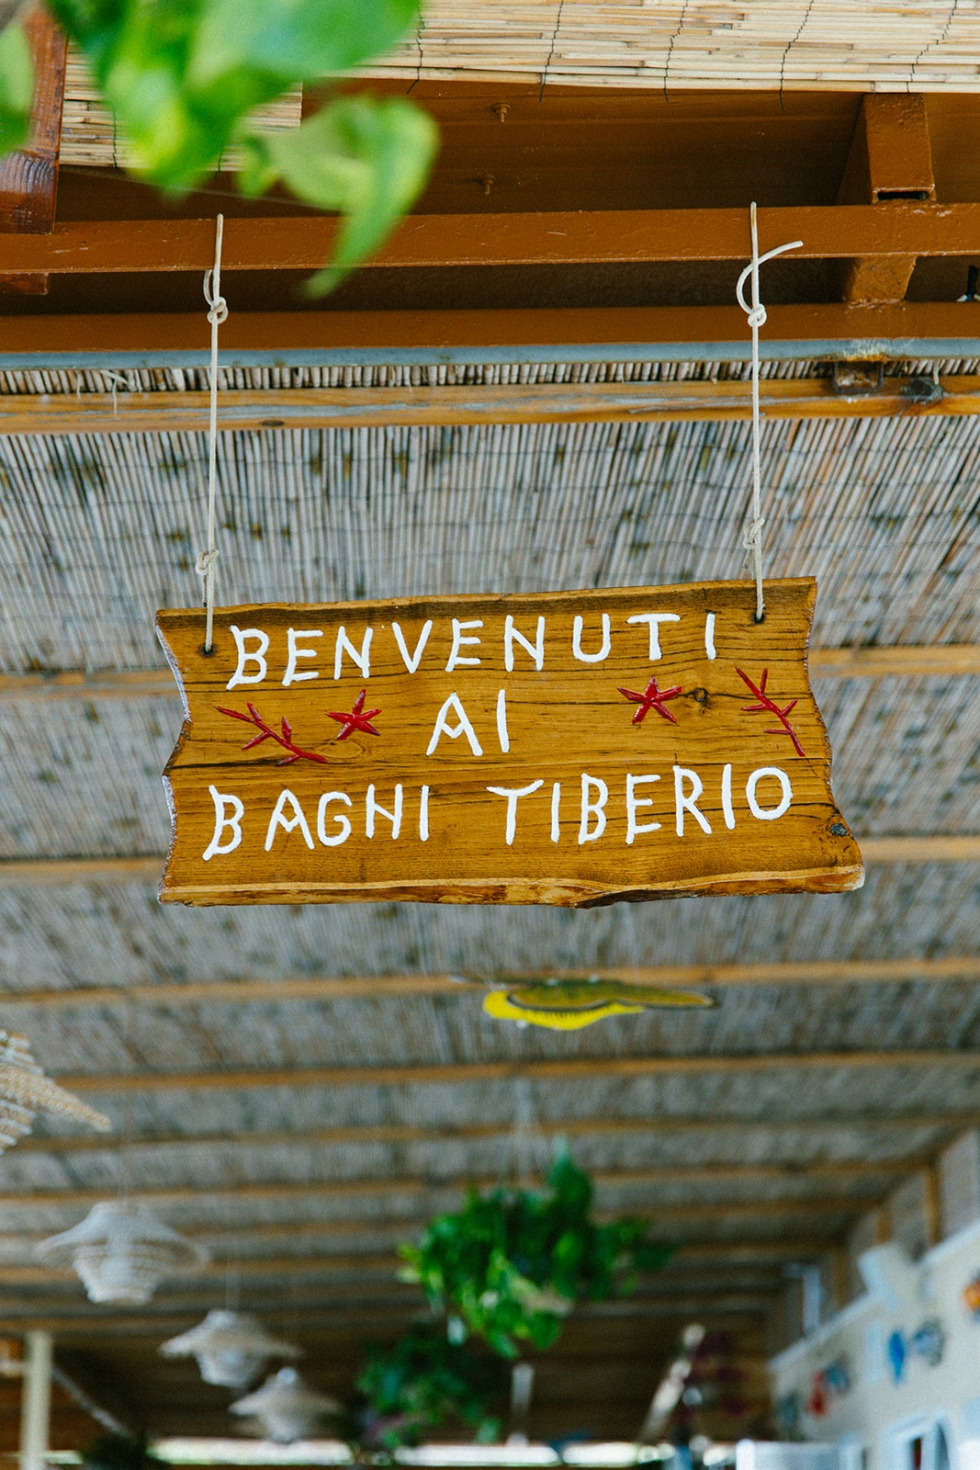 BENVENUTI
AI
BAGHI TIBERIO